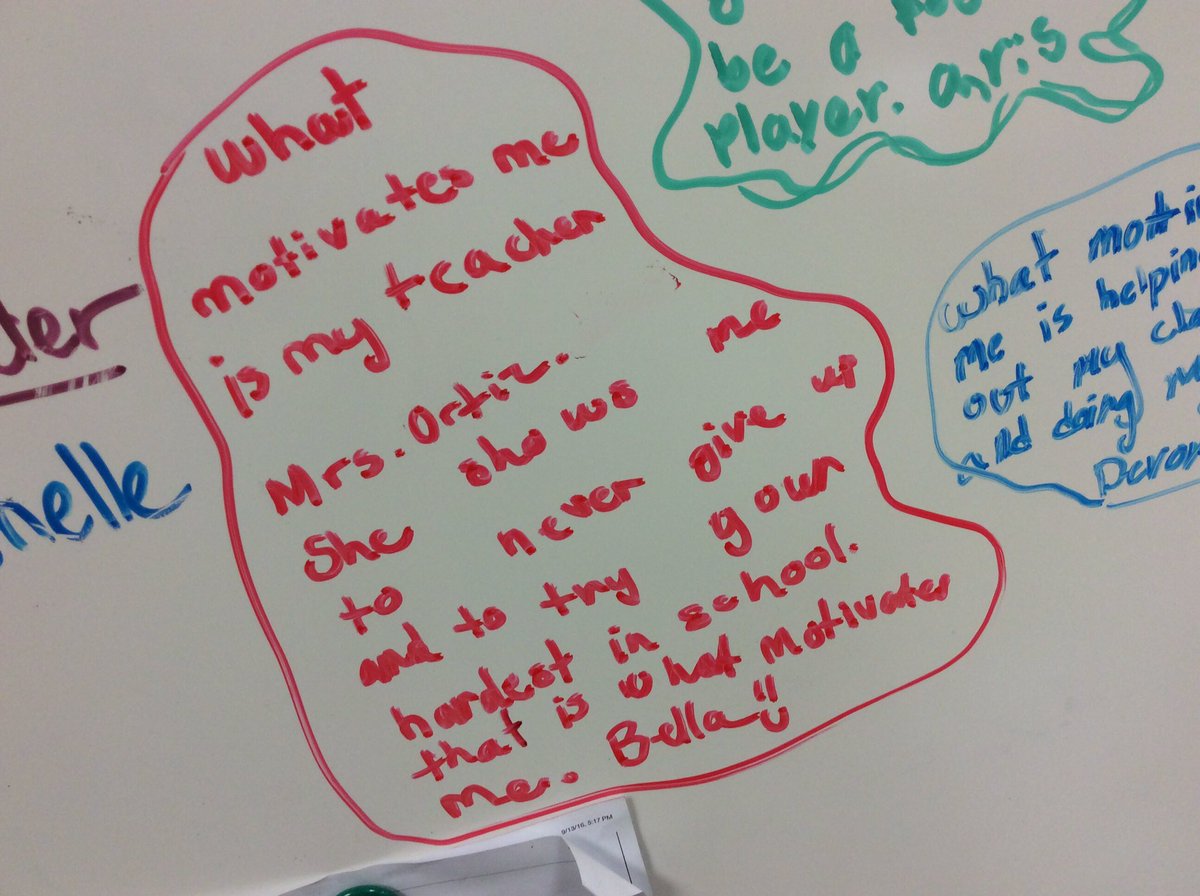 What
motivates me
is my teacher
Mrs. Ortiz.
She shows me
to never give up
and to try your
hardest in school.
that is what motivates
me. Bella
be a
player. aris
what
me is helping
out my
and doing
nelle
9/13/16, 5:17 PM